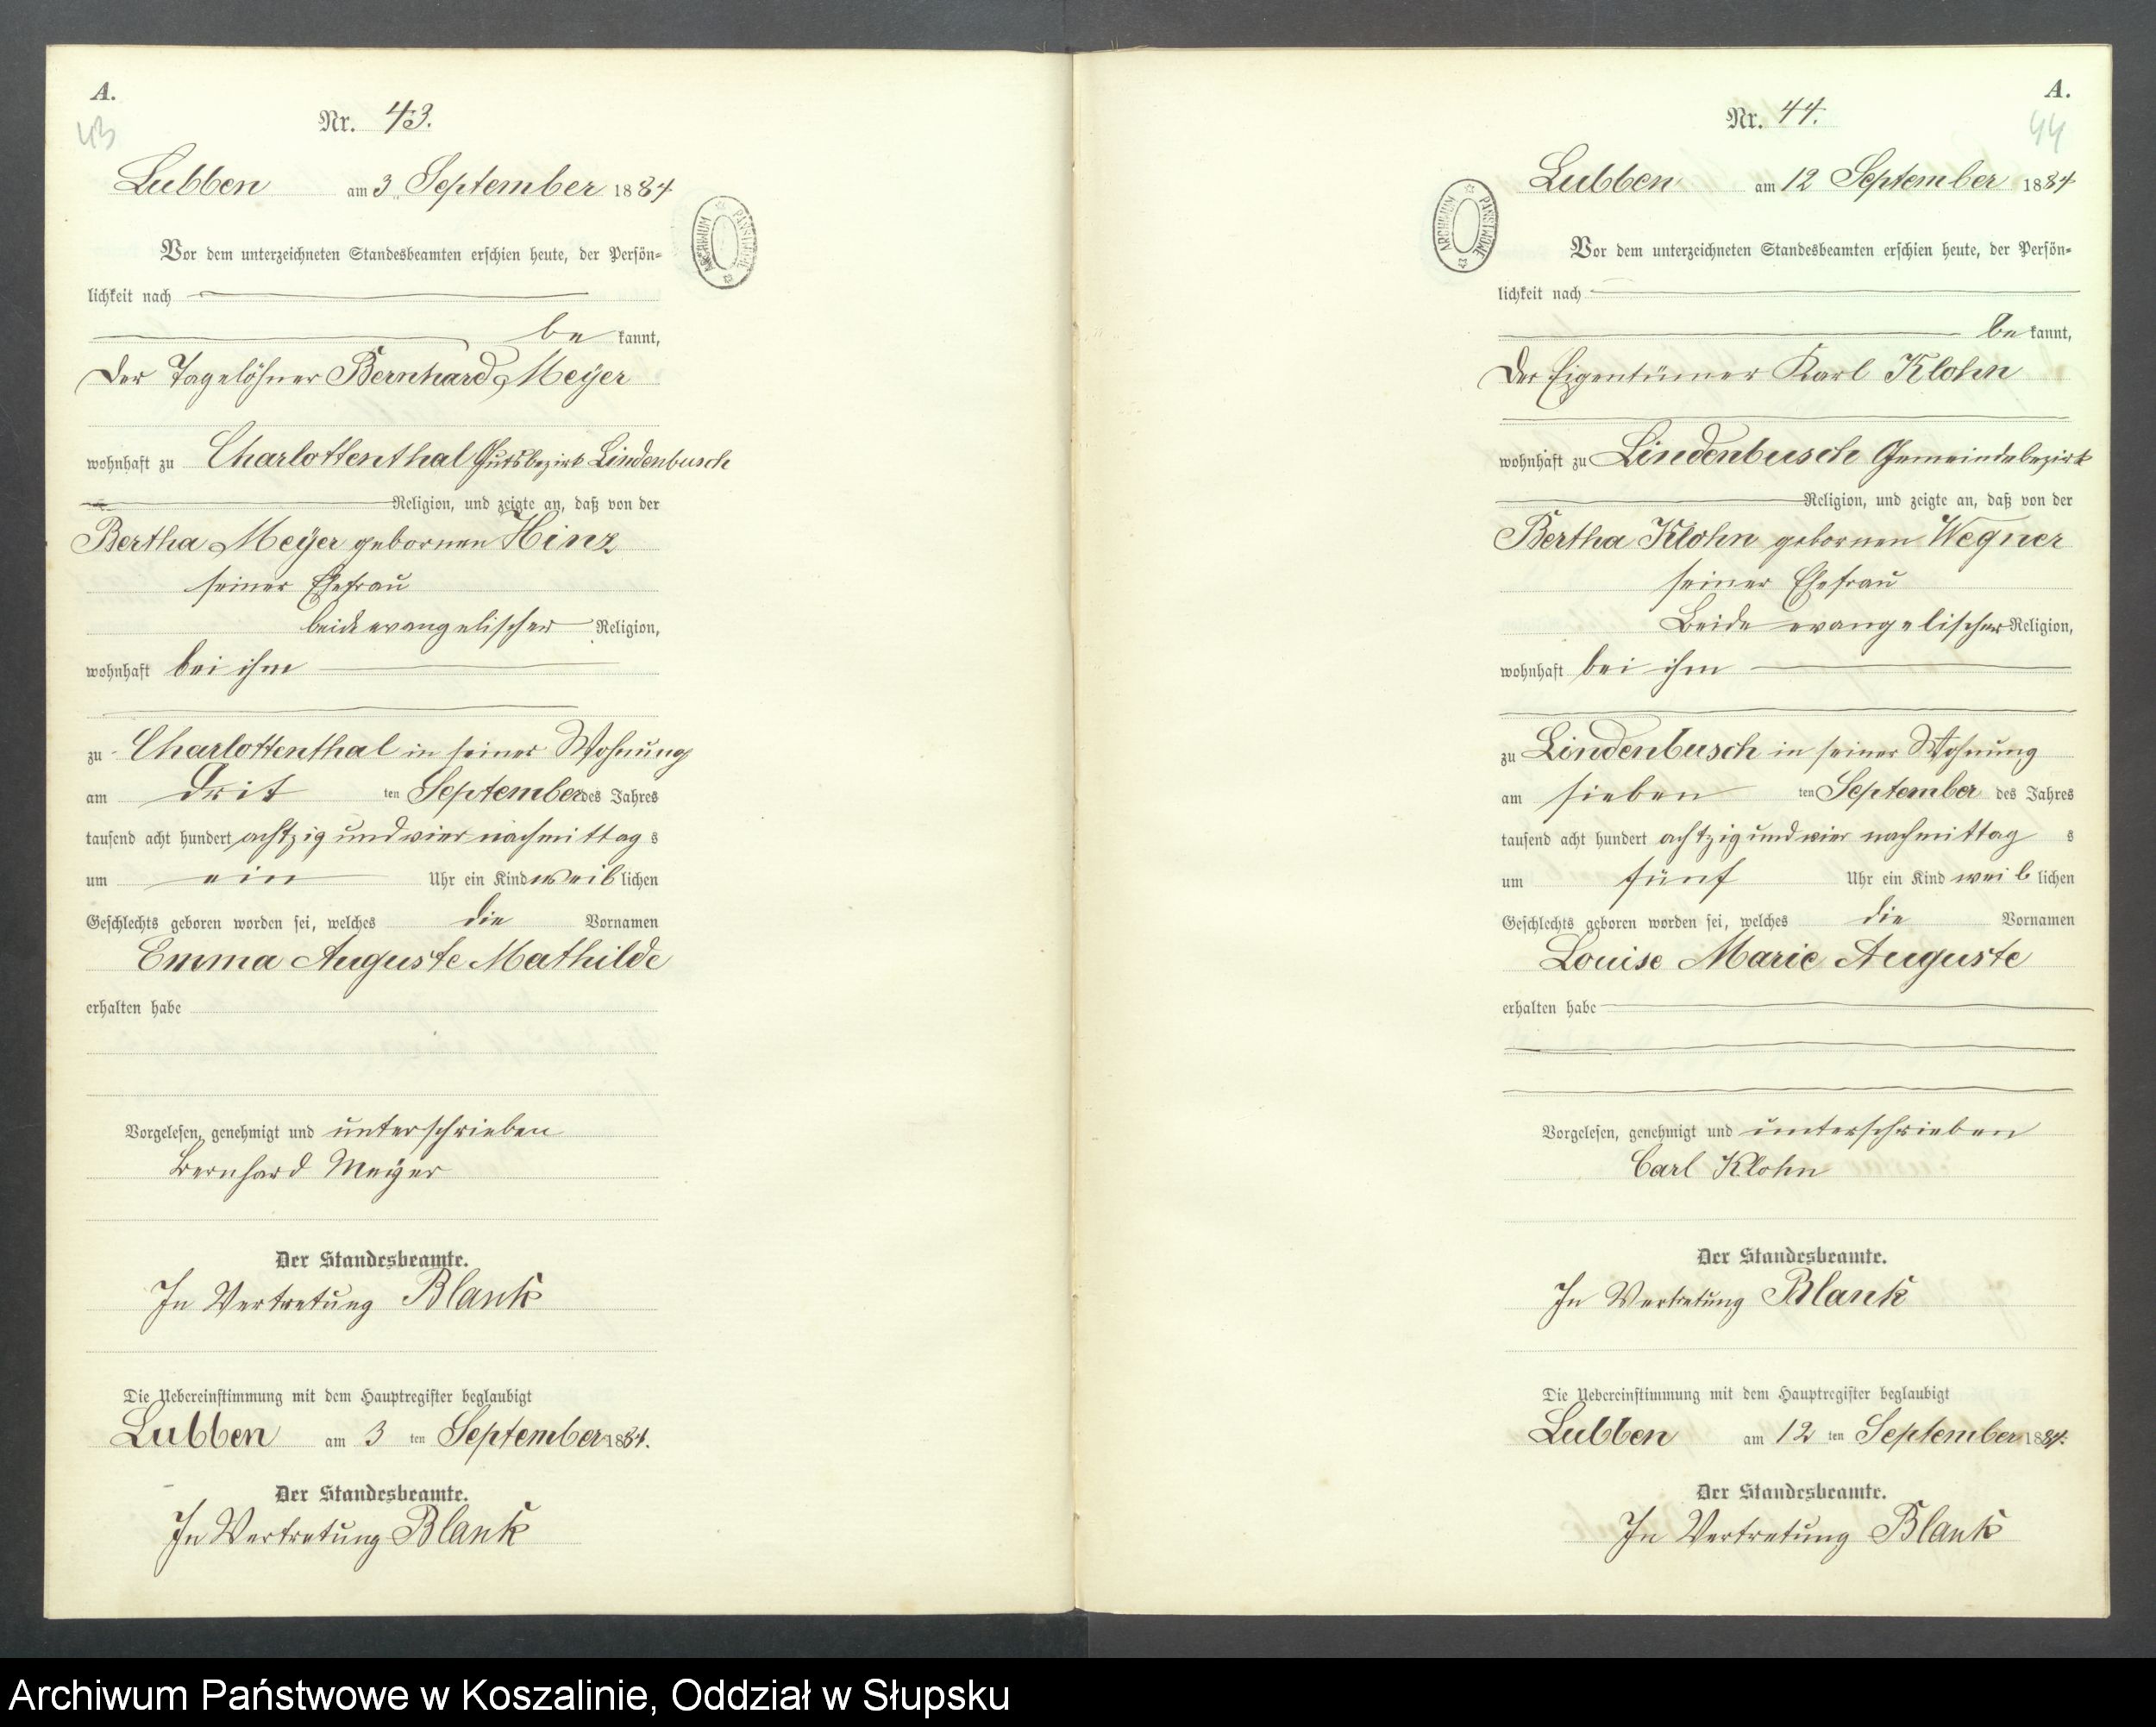 A.
Nr. 43.
43
Lubben am 3. September 1884
ARCHIWUM PAŃSTWOWE
Vor dem unterzeichneten Standesbeamten erschien heute, der Persön=
lichkeit nach
be kannt,
der Tagelöhner Bernhard Meÿer
wohnhaft zu Charlottenthal Gutsbezirk Lindenbusch
Religion, und zeigte an, daß von der
Bertha Meÿer gebornen Hinz
seiner Ehefrau
beide evangelischer Religion,
wohnhaft bei ihm
zu Charlottenthal in seiner Wohnung
am drit ten September des Jahres
tausend acht hundert achtzig und vier nachmittag s
um ein Uhr ein Kind weib lichen
Geschlechts geboren worden sei, welches die Vornamen
Emma Auguste Mathilde
erhalten habe
Vorgelesen, genehmigt und unterschrieben
Bernhard Meÿer
Der Standesbeamte.
In Vertretung Blank
Die Uebereinstimmung mit dem Hauptregister beglaubigt
Lubben am 3 ten September 1884.
Der Standesbeamte.
In Vertretung Blank
A.
Nr. 44.
44
Lubben am 12 September 1884
ARCHIWUM PAŃSTWOWE
Vor dem unterzeichneten Standesbeamten erschien heute, der Persön=
lichkeit nach
be kannt,
der Eigentümer Karl Klohn
wohnhaft zu Lindenbusch Gemeindebezirk
Religion, und zeigte an, daß von der
Bertha Klohn gebornen Wegner
seiner Ehefrau
Beide evangelischer Religion,
wohnhaft bei ihm
zu Lindenbusch in seiner Wohnung
am sieben ten September des Jahres
tausend acht hundert achtzig und vier nachmittag s
um fünf Uhr ein Kind weib lichen
Geschlechts geboren worden sei, welches die Vornamen
Louise Marie Auguste
erhalten habe
Vorgelesen, genehmigt und unterschrieben
Carl Klohn
Der Standesbeamte.
In Vertretung Blank
Die Uebereinstimmung mit dem Hauptregister beglaubigt
Lubben am 12 ten September 1884.
Der Standesbeamte.
In Vertretung Blank
Archiwum Państwowe w Koszalinie, Oddział w Słupsku